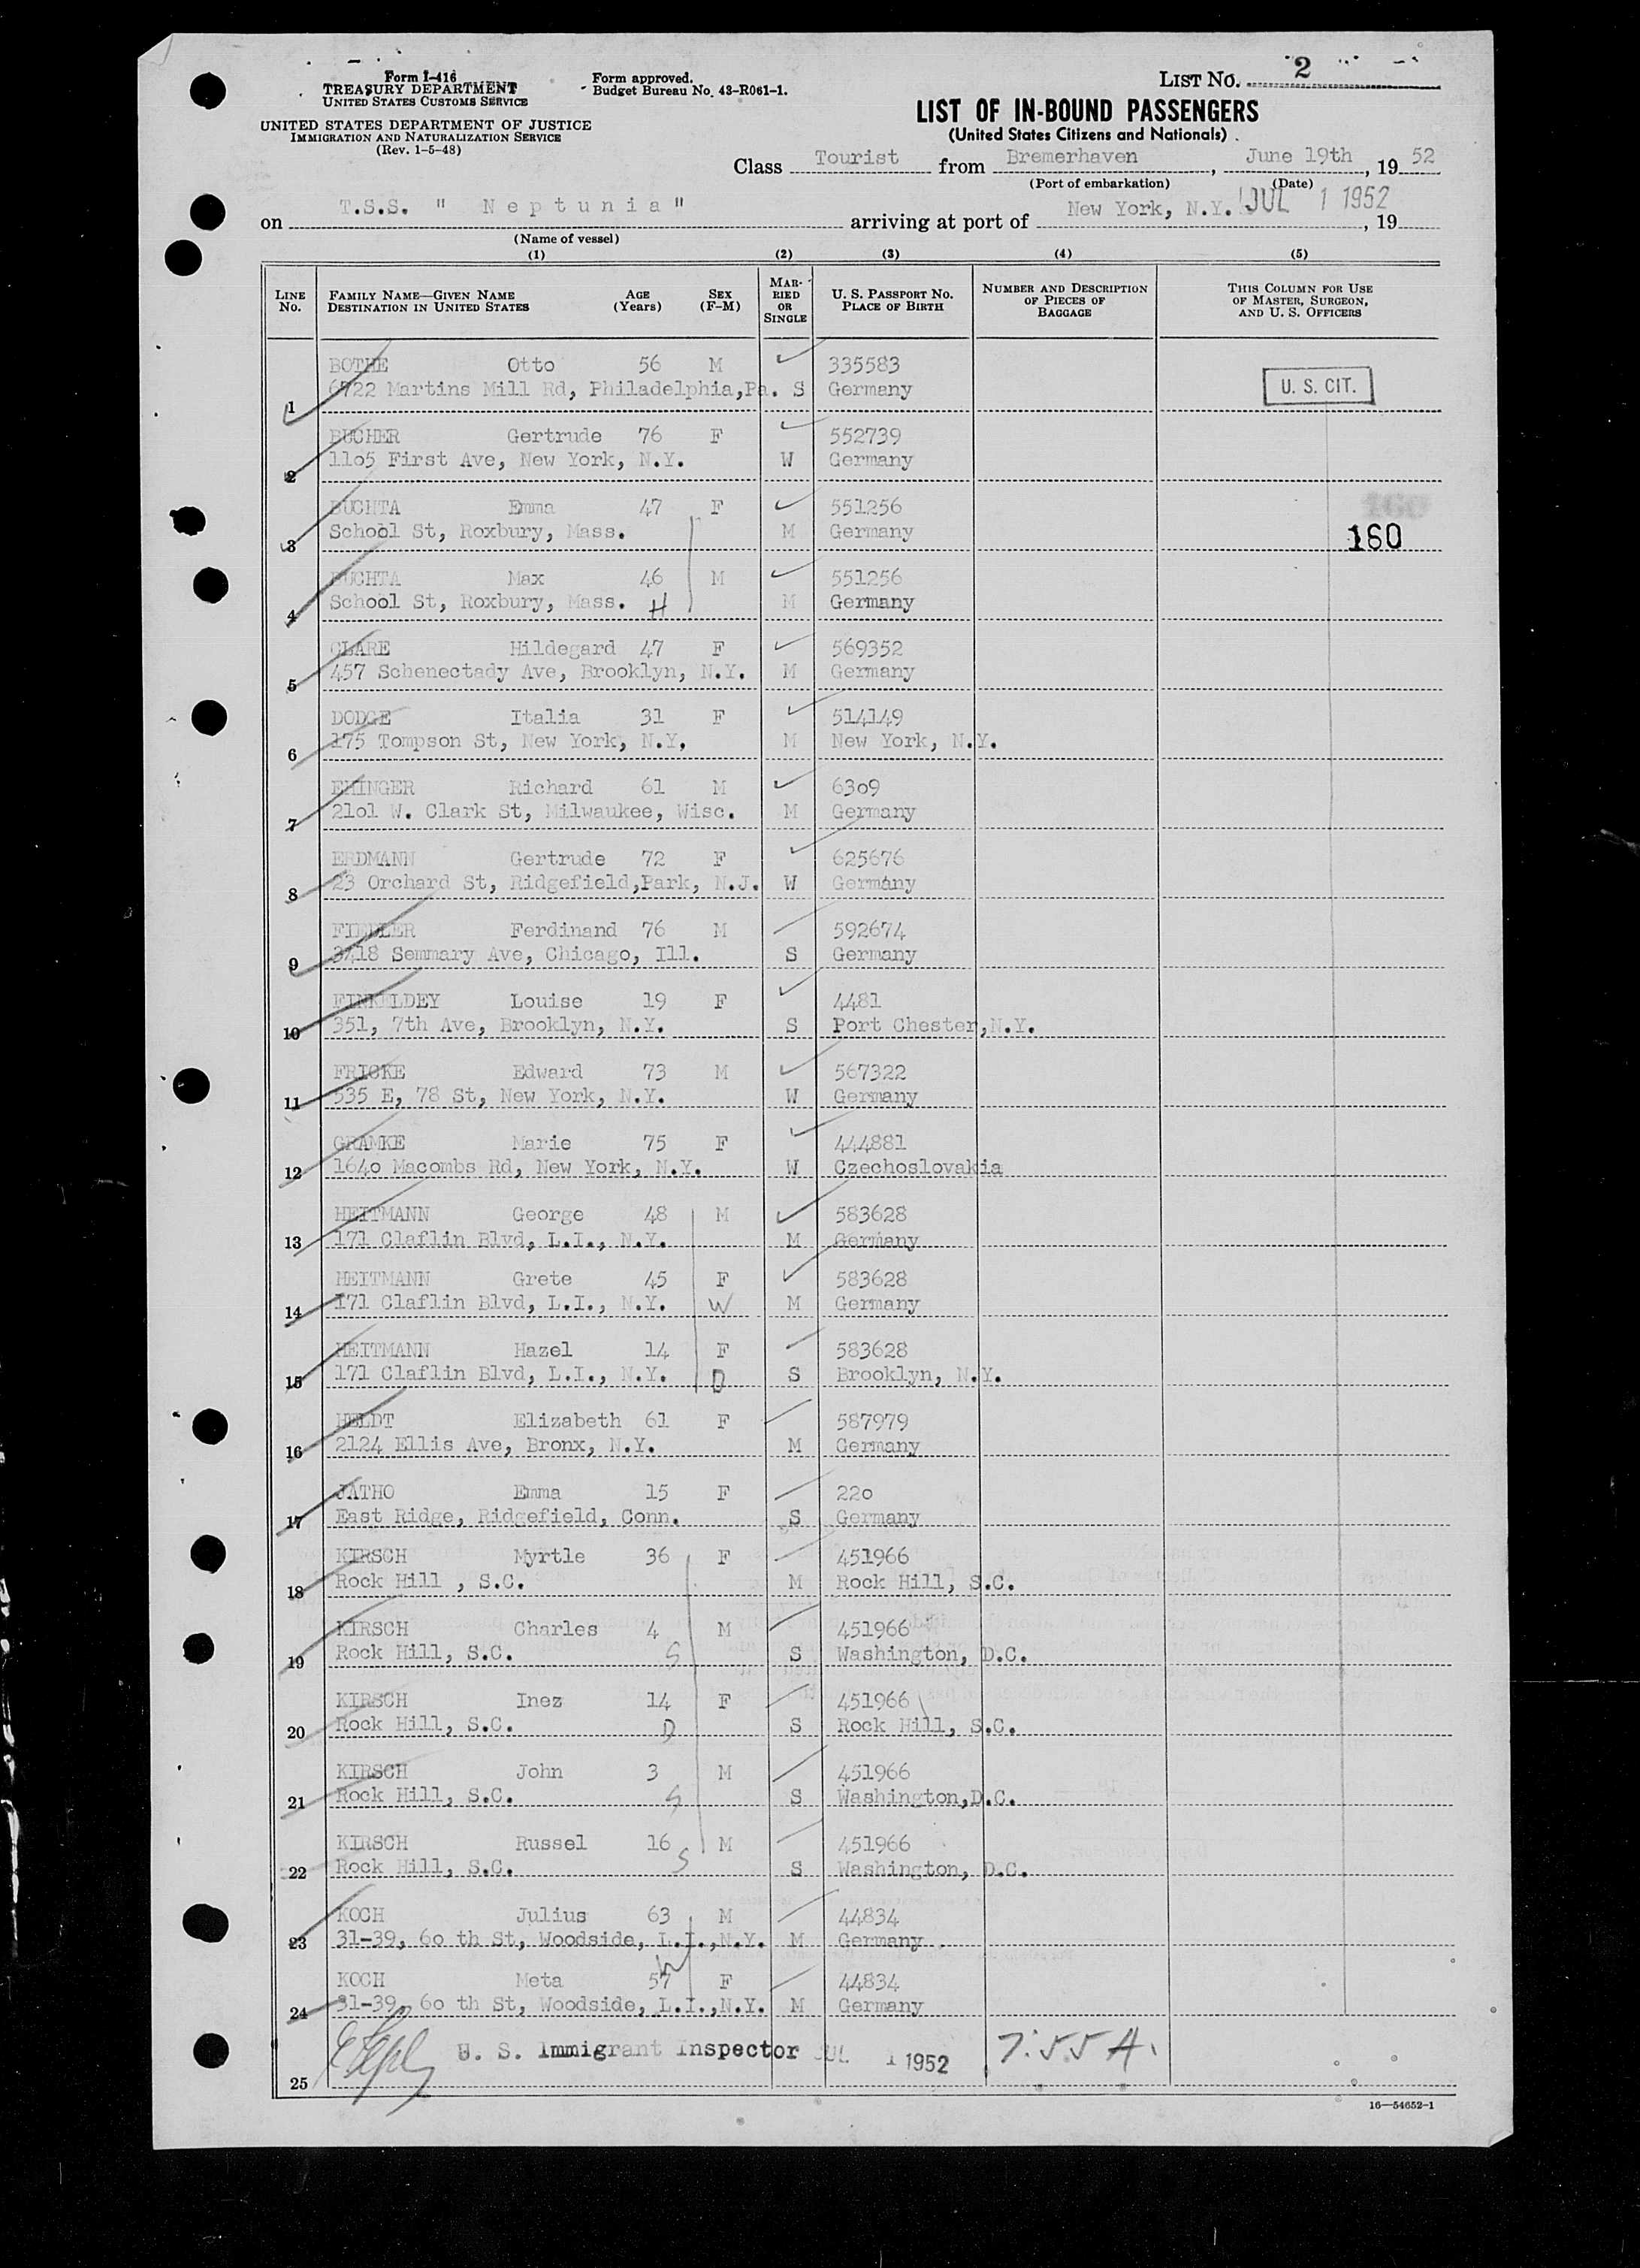 Form I-416
TREASURY DEPARTMENT
UNITED STATES CUSTOMS SERVICE
UNITED STATES DEPARTMENT OF JUSTICE
IMMIGRATION AND NATURALIZATION SERVICE
(Rev. 1-5-48)
Form approved.
Budget Bureau No. 43-R061-1.
LIST NO. 2
LIST OF IN-BOUND PASSENGERS
(United States Citizens and Nationals)
Class Tourist from Bremerhaven, June 19th, 19 52
(Port of embarkation) (Date)
on T.S.S. " Neptunia" arriving at port of New York, N.Y. JUL 1 1952, 19
(Name of vessel)
(1) (2) (3) (4) (5)
LINE NO. FAMILY NAME—GIVEN NAME DESTINATION IN UNITED STATES AGE (YEARS) SEX (F-M) MARRIED OR SINGLE U. S. PASSPORT NO. PLACE OF BIRTH NUMBER AND DESCRIPTION OF PIECES OF BAGGAGE THIS COLUMN FOR USE OF MASTER, SURGEON, AND U. S. OFFICERS
BOTHE Otto 56 M 335583
1 6722 Martins Mill Rd, Philadelphia,Pa. S Germany U. S. CIT.
BUCHER Gertrude 76 F 552739
2 11o5 First Ave, New York, N.Y. W Germany
BUCHTA Emma 47 F 551256 160
3 School St, Roxbury, Mass. M Germany 160
BUCHTA Max 46 M 551256
4 School St, Roxbury, Mass. H M Germany
CLARE Hildegard 47 F 569352
5 457 Schenectady Ave, Brooklyn, N.Y. M Germany
DODGE Italia 31 F 514149
6 175 Tompson St, New York, N.Y, M New York, N.Y.
EHINGER Richard 61 M 63o9
7 21o1 W. Clark St, Milwaukee, Wisc. M Germany
ERDMANN Gertrude 72 F 625676
8 23 Orchard St, Ridgefield,Park, N.J. W Germany
FIEDLER Ferdinand 76 M 592674
9 3418 Semmary Ave, Chicago, Ill. S Germany
FINKELDEY Louise 19 F 4481
10 351, 7th Ave, Brooklyn, N.Y. S Port Chester,N.Y.
FRICKE Edward 73 M 567322
11 535 E, 78 St, New York, N.Y. W Germany
GRAMKE Marie 75 F 444881
12 164o Macombs Rd, New York, N.Y. W Czechoslovakia
HEITMANN George 48 M 583628
13 171 Claflin Blvd, L.I., N.Y. M Germany
HEITMANN Grete 45 F 583628
14 171 Claflin Blvd, L.I., N.Y. W M Germany
HEITMANN Hazel 14 F 583628
15 171 Claflin Blvd, L.I., N.Y. D S Brooklyn, N.Y.
HELDT Elizabeth 61 F 587979
16 2124 Ellis Ave, Bronx, N.Y. M Germany
JATHO Emma 15 F 22o
17 East Ridge, Ridgefield, Conn. S Germany
KIRSCH Myrtle 36 F 451966
18 Rock Hill , S.C. M Rock Hill, S.C.
KIRSCH Charles 4 M 451966
19 Rock Hill, S.C. S S Washington, D.C.
KIRSCH Inez 14 F 451966
20 Rock Hill, S.C. D S Rock Hill, S.C.
KIRSCH John 3 M 451966
21 Rock Hill, S.C. S S Washington,D.C.
KIRSCH Russel 16 M 451966
22 Rock Hill, S.C. S S Washington, D.C.
KOCH Julius 63 M 44834
23 31-39, 6o th St, Woodside, L.I.,N.Y. M Germany
KOCH Meta 57 W F 44834
24 31-39, 6o th St, Woodside, L.I.,N.Y. M Germany
25 U. S. Immigrant Inspector JUL 1 1952 7:55 A.
16—54652-1